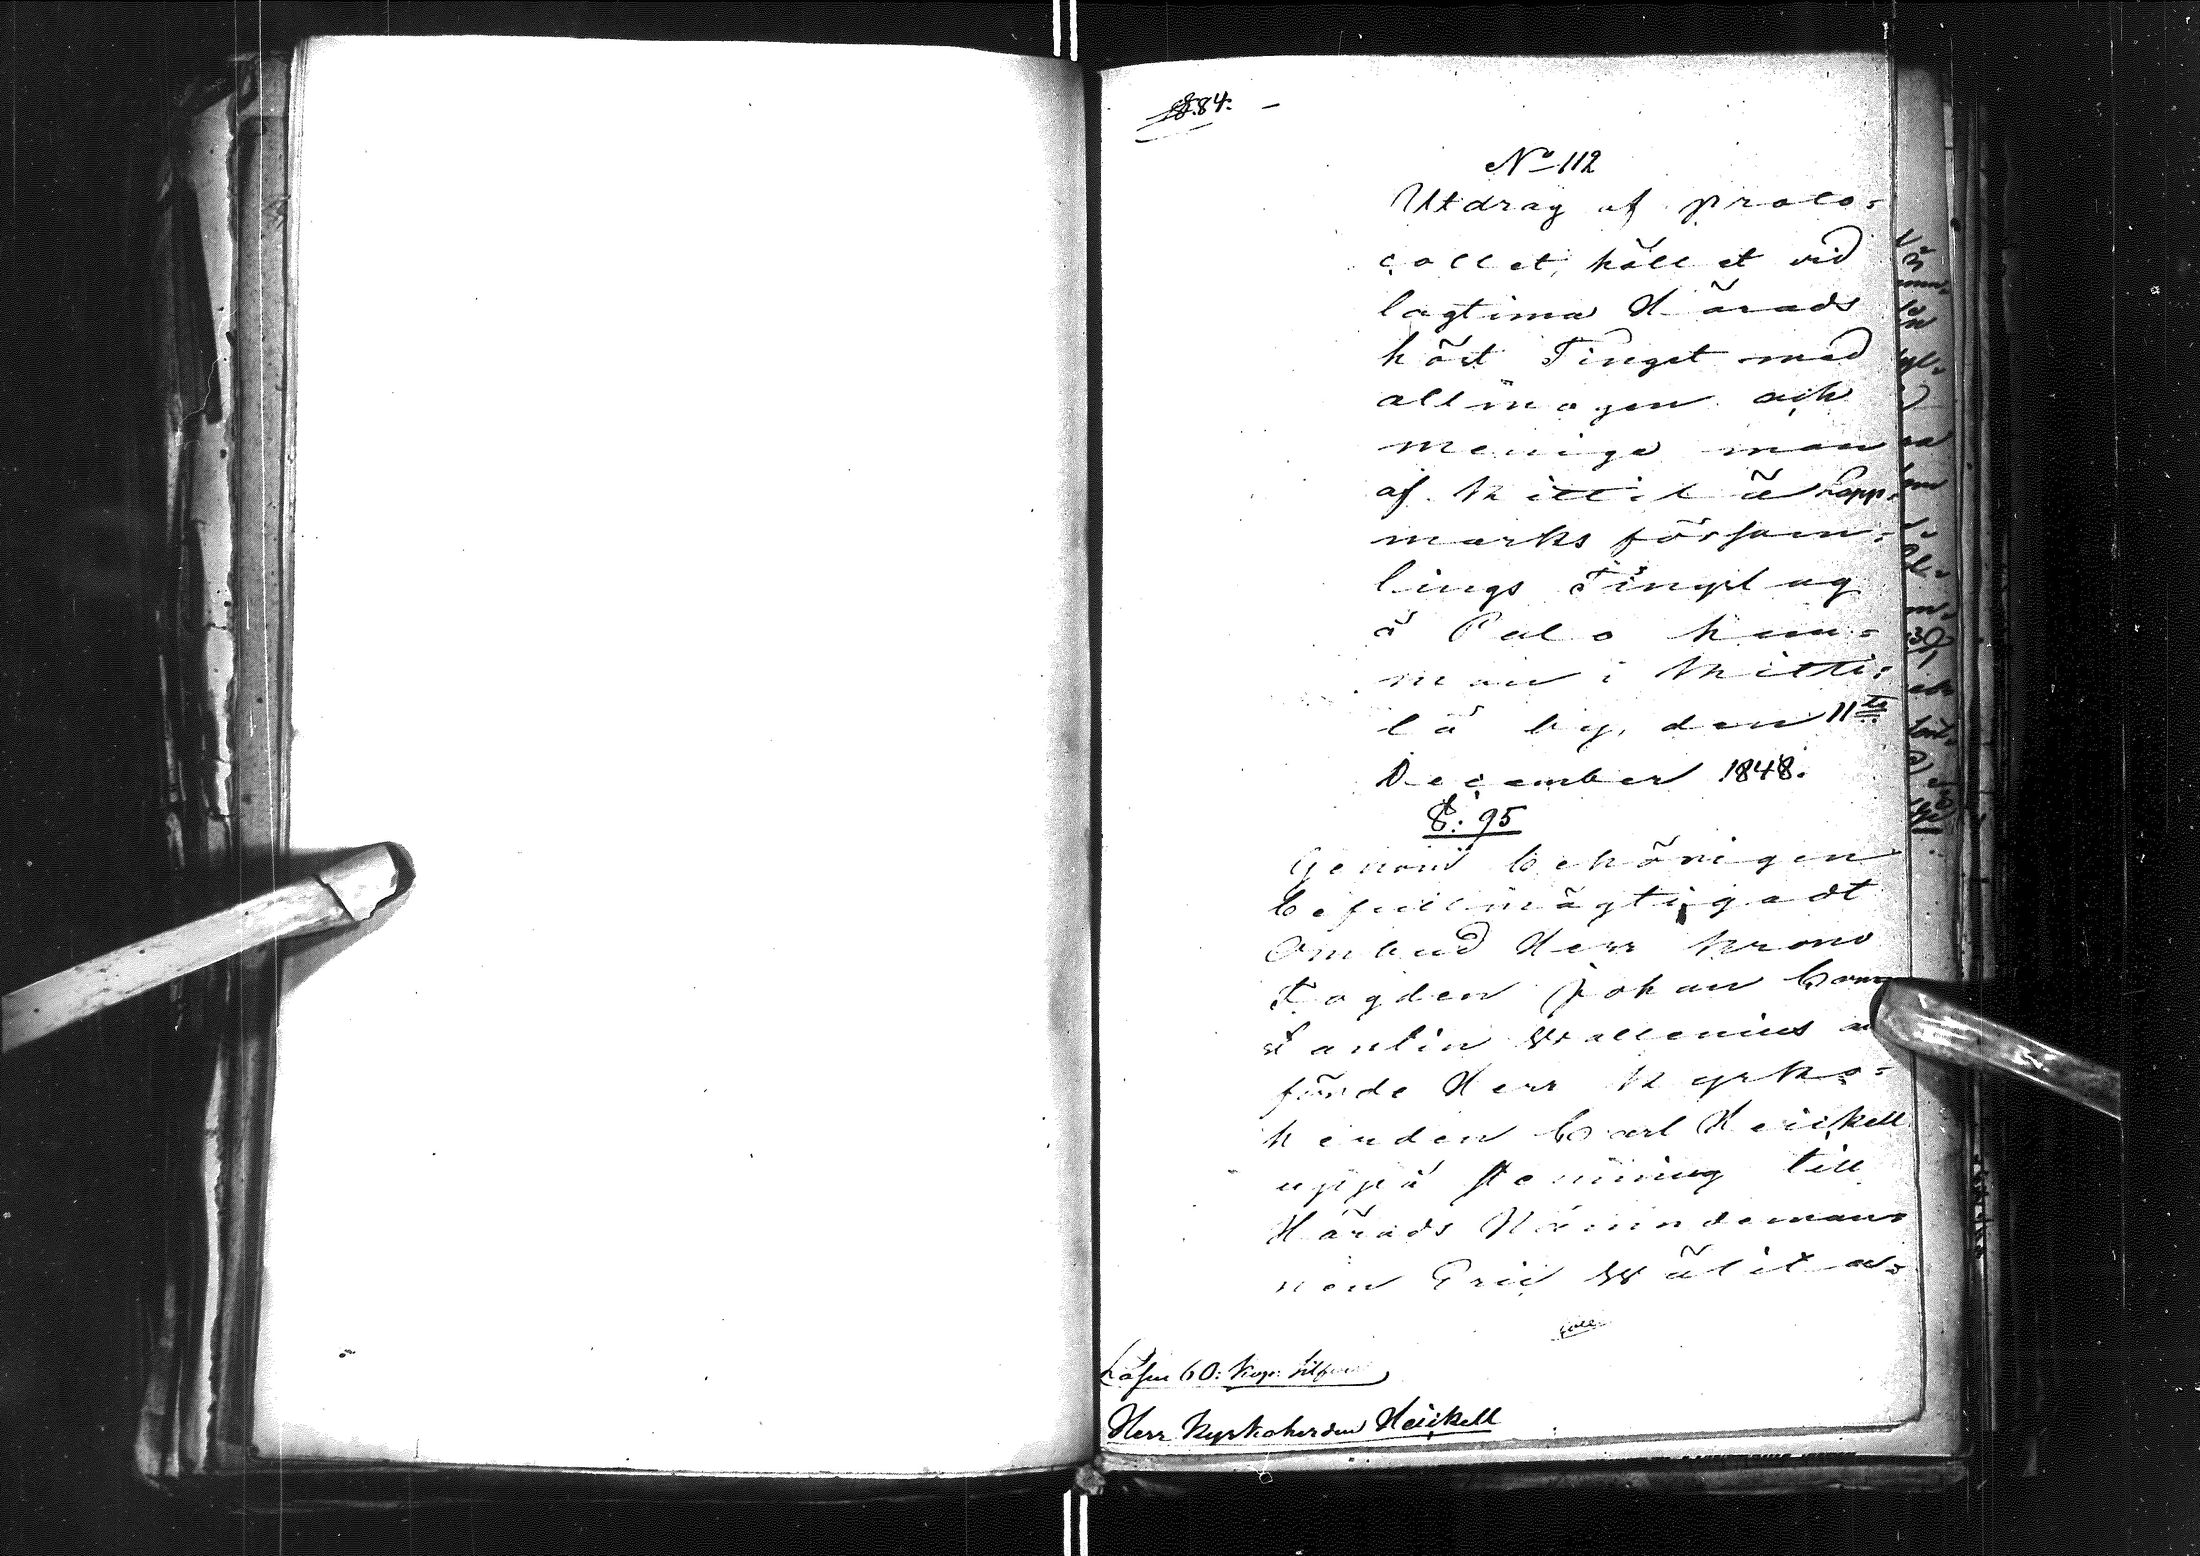 84.
No 112
Utdrag af proto=
collet, hållet vid
lagtima Härads
höst Tinget med
allmogen och
menige man
af Kittilä Lapp=
marks försam=
lings Tingslag
å Palo hem=
man i Kitti=
lä by, den 11te
December 1848.
§. 95
Genom behörigen
befullmägtigadt
Ombud Herr Krono
Fogden Johan Con
stantin Wallenius
förde Herr Kyrko=
herden Carl Heickell
uppå stemning till
Härads Nämndeman=
nen Eric Wälita=
Lösen 60: Kop: Silfver
Herr Kyrkoherden Heickell